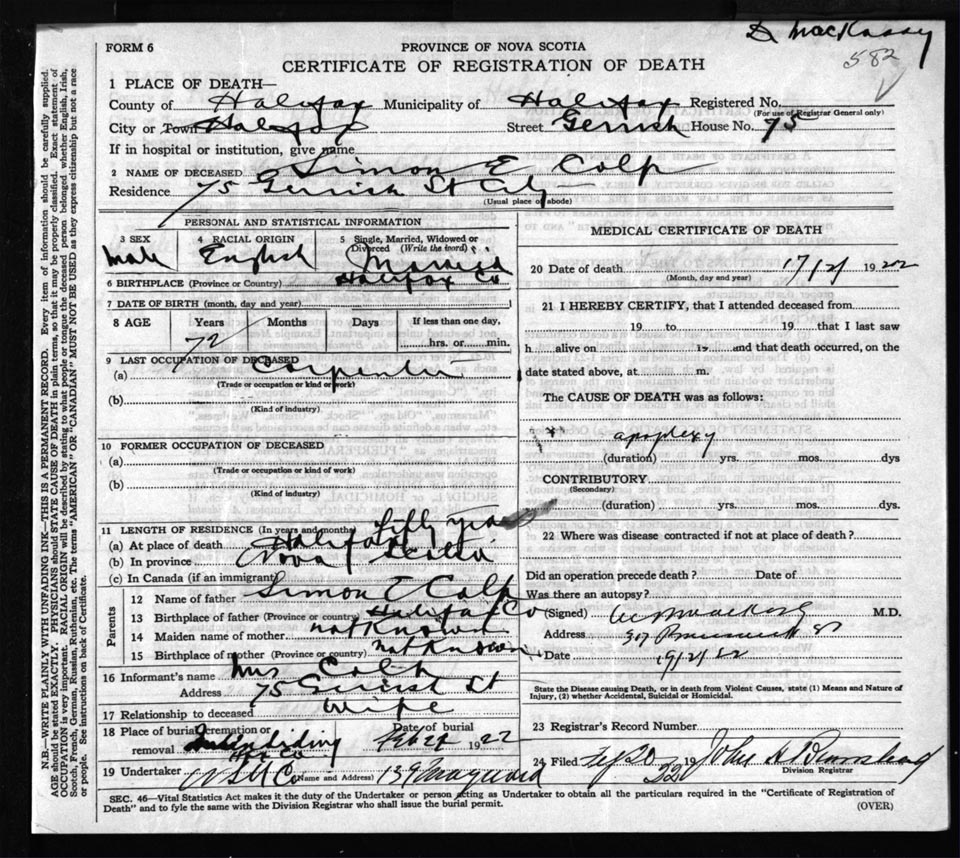 582
FORM 6
PROVINCE OF NOVA SCOTIA
CERTIFICATE OF REGISTRATION OF DEATH
1 PLACE OF DEATH—
County of Halifax Municipality of Halifax Registered No.
(For use of Registrar General only)
City or Town Halifax Street Gerrish House No. 75
If in hospital or institution, give name
2 NAME OF DECEASED Simon E Colp
Residence 75 Gerrish St City
(Usual place of abode)
PERSONAL AND STATISTICAL INFORMATION
3 SEX
Male
4 RACIAL ORIGIN
English
5 Single, Married, Widowed or
Divorced (Write the word)
Married
6 BIRTHPLACE (Province or Country) Halifax Co
7 DATE OF BIRTH (month, day and year)
8 AGE Years Months Days If less than one day,
72 hrs. or min.
9 LAST OCCUPATION OF DECEASED
(a) Carpenter
(Trade or occupation or kind of work)
(b)
(Kind of industry)
10 FORMER OCCUPATION OF DECEASED
(a)
(Trade or occupation or kind of work)
(b)
(Kind of industry)
11 LENGTH OF RESIDENCE (In years and months) fifty years
(a) At place of death Halifax
(b) In province Nova Scotia
(c) In Canada (if an immigrant)
Parents
12 Name of father Simon E Colp
13 Birthplace of father (Province or country) Halifax Co
14 Maiden name of mother not Known
15 Birthplace of mother (Province or country) not Known
16 Informant's name Mrs Colp
Address 75 Gerrish St
17 Relationship to deceased wife
18 Place of burial cremation or
removal
Date of burial
1922
19 Undertaker
(Name and Address)
MEDICAL CERTIFICATE OF DEATH
20 Date of death 17/2/ 1922
(Month, day and year)
21 I HEREBY CERTIFY, that I attended deceased from
19 to 19 that I last saw
h alive on 19 and that death occurred, on the
date stated above, at m.
The CAUSE OF DEATH was as follows:
apoplexy
(duration) yrs. mos. dys
CONTRIBUTORY
(Secondary)
(duration) yrs. mos. dys.
22 Where was disease contracted if not at place of death?
Did an operation precede death? Date of
Was there an autopsy?
(Signed) M.D.
Address St
Date 19/2/22
State the Disease causing Death, or in death from Violent Causes, state (1) Means and Nature of
Injury, (2) whether Accidental, Suicidal or Homicidal.
23 Registrar's Record Number
24 Filed 20 19 22
Division Registrar
SEC. 46—Vital Statistics Act makes it the duty of the Undertaker or person acting as Undertaker to obtain all the particulars required in the "Certificate of Registration of
Death" and to fyle the same with the Division Registrar who shall issue the burial permit.
(OVER)
N.B.—WRITE PLAINLY WITH UNFADING INK—THIS IS A PERMANENT RECORD. Every item of information should be carefully supplied.
AGE should be stated EXACTLY. PHYSICIANS should STATE CAUSE OF DEATH in plain terms, so that it may be properly classified. Exact statement of
OCCUPATION is very important. RACIAL ORIGIN will be described by stating to what people or tongue the deceased person belonged whether English, Irish,
Scotch, French, German, Russian, Ruthenian, etc. The terms "AMERICAN" OR "CANADIAN" MUST NOT BE USED as they express citizenship but not a race
or people. See instructions on back of Certificate.